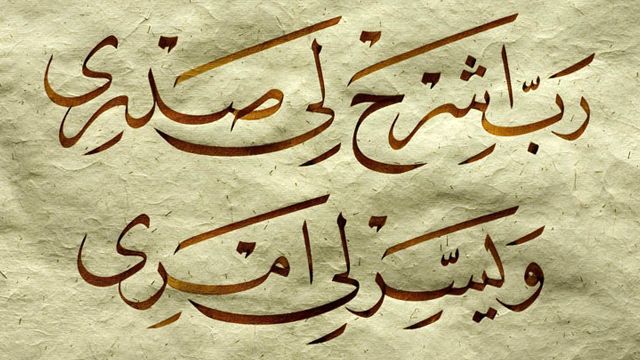 رَبِّ اشْرَحْ لِي صَدْرِي
وَيَسِّرْ لِي اَمْرِي